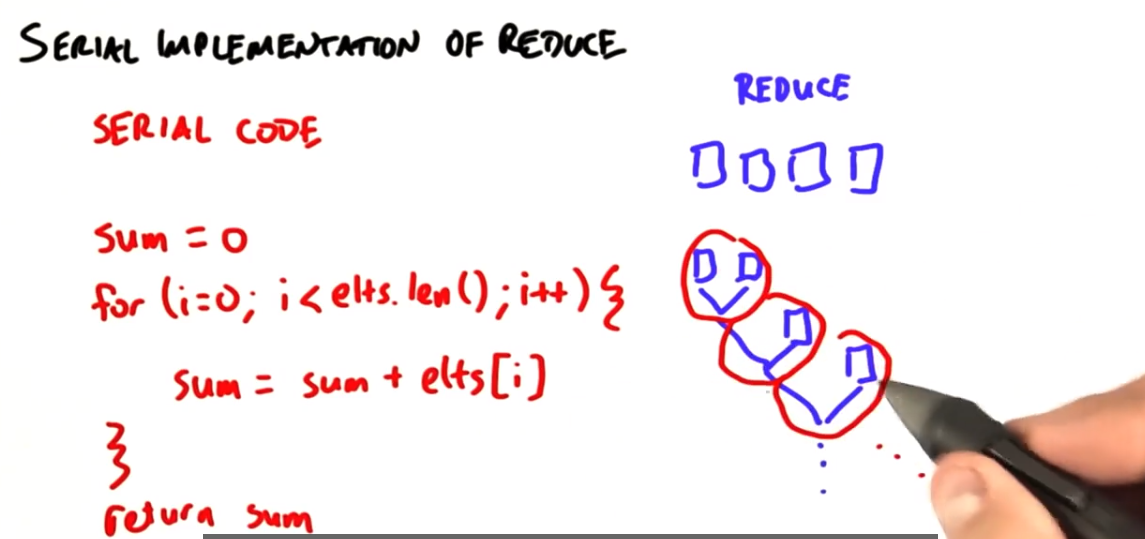 SERIAL IMPLEMENTATION OF REDUCE
REDUCE
SERIAL CODE
sum = 0
for (i=0; i<elts.len(); i++) {
sum = sum + elts[i]
}
return sum